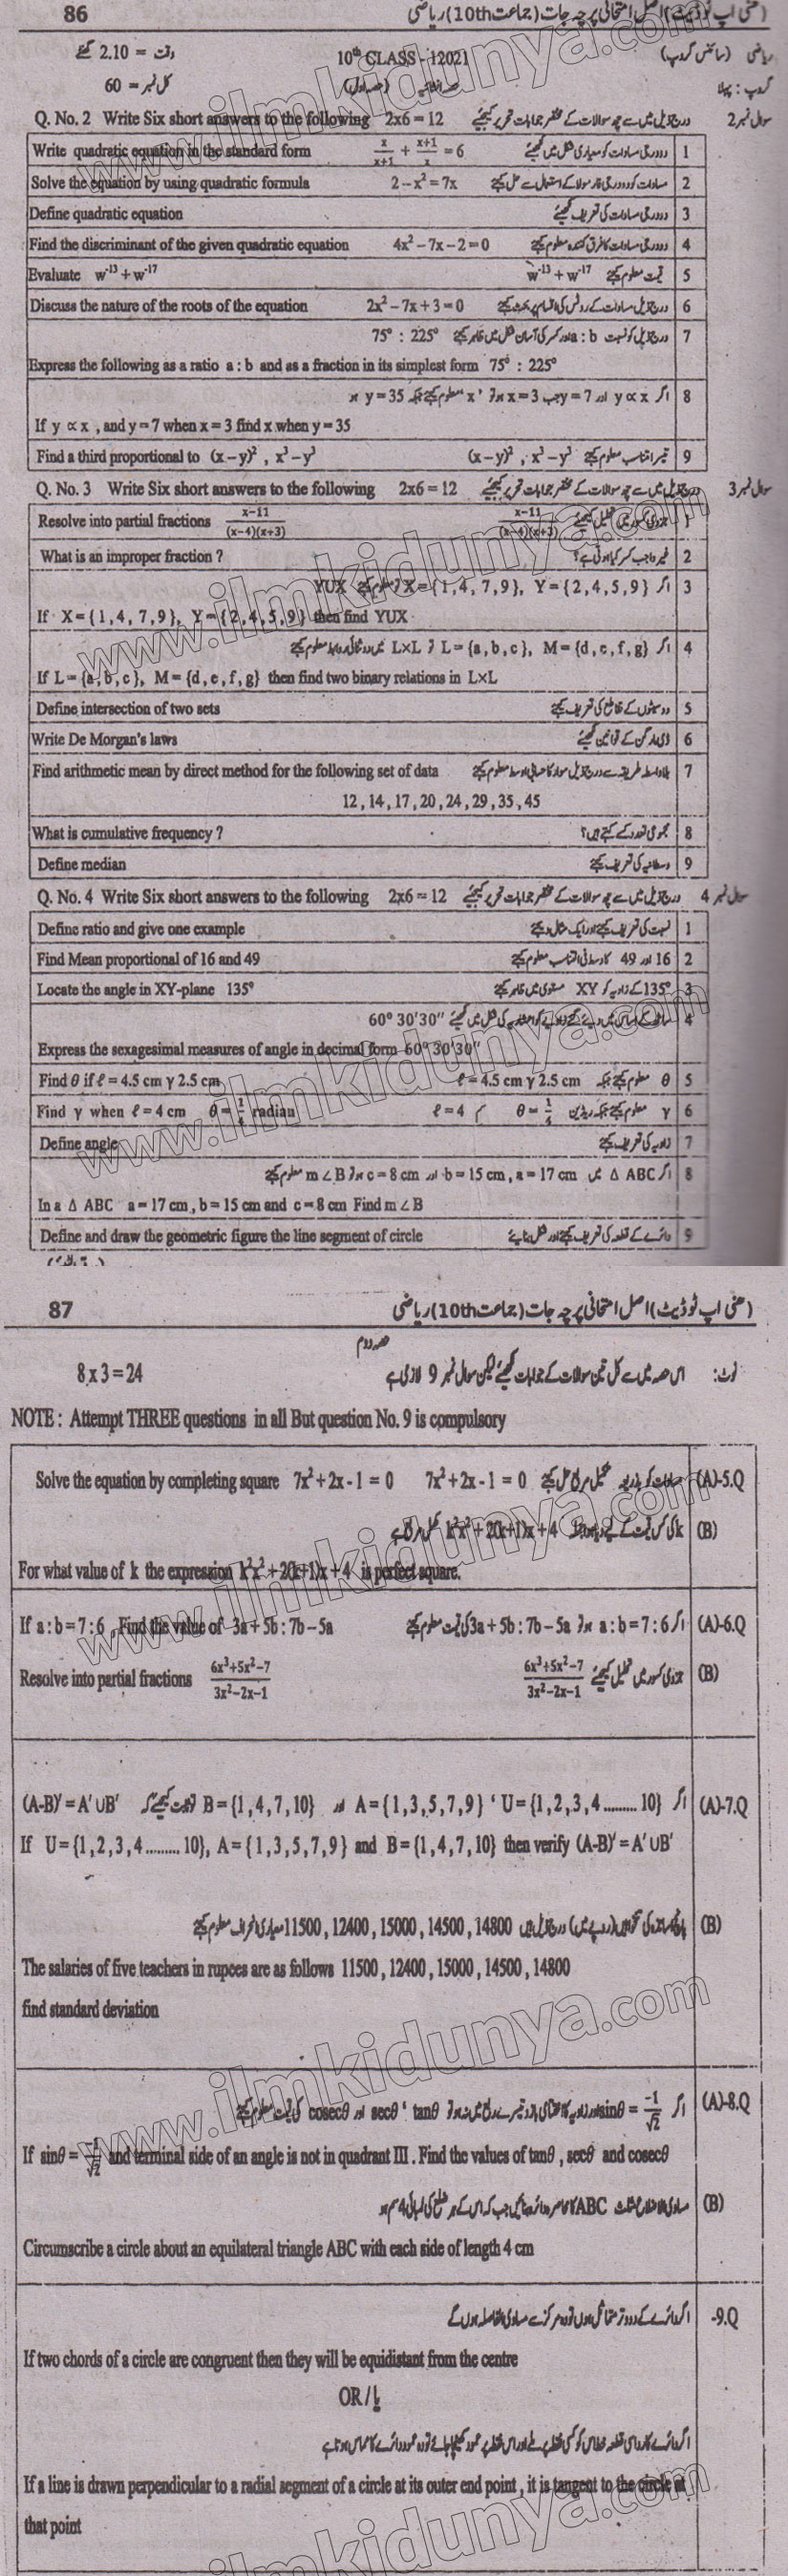 86 (هنی اپ ٹوڈیٹ) اصل امتحانی پرچہ جات (جماعت 10th) ریاضی
وقت = 2.10 گھنٹے 10th CLASS - 12021 ریاضی (سائنس گروپ)
کل نمبر = 60 حصہ انشائیہ (حصہ اول) گروپ : پہلا
Q. No. 2 Write Six short answers to the following 2x6 = 12 درج ذیل میں سے چھ سوالات کے مختصر جوابات تحریر کیجئے سوال نمبر 2
Write quadratic equation in the standard form x/x+1 + x+1/x = 6 دو درجی مساوات کو معیاری شکل میں لکھیئے 1
Solve the equation by using quadratic formula 2 – x² = 7x مساوات کو دو درجی فارمولا کے استعمال سے حل کیجئے 2
Define quadratic equation دو درجی مساوات کی تعریف کیجئے 3
Find the discriminant of the given quadratic equation 4x² – 7x – 2 = 0 دو درجی مساوات کا فرق کنندہ معلوم کیجئے 4
Evaluate w⁻¹³ + w⁻¹⁷ w⁻¹³ + w⁻¹⁷ قیمت معلوم کیجئے 5
Discuss the nature of the roots of the equation 2x² – 7x + 3 = 0 درج ذیل مساوات کے روٹس کی اقسام پر بحث کیجئے 6
75° : 225° درج ذیل کو نسبت a : b اور کسر کی آسان شکل میں ظاہر کیجئے 7
Express the following as a ratio a : b and as a fraction in its simplest form 75° : 225°
اگر y ∝ x اور y = 7 جب x = 3 ہو تو 'x' معلوم کیجئے جبکہ y = 35 ہو 8
If y ∝ x , and y = 7 when x = 3 find x when y = 35
Find a third proportional to (x – y)² , x³ – y³ (x – y)² , x³ – y³ تیسرا تناسب معلوم کیجئے 9
Q. No. 3 Write Six short answers to the following 2x6 = 12 درج ذیل میں سے چھ سوالات کے مختصر جوابات تحریر کیجئے سوال نمبر 3
Resolve into partial fractions x–11/(x–4)(x+3) x–11/(x–4)(x+3) جزوی کسور میں تحلیل کیجئے 1
What is an improper fraction ? غیر واجب کسر کیا ہوتی ہے؟ 2
اگر X = {1, 4, 7, 9}, Y = {2, 4, 5, 9} تو معلوم کیجئے YUX 3
If X = {1, 4, 7, 9}, Y = {2, 4, 5, 9} then find YUX
اگر L = {a, b, c}, M = {d, c, f, g} تو L×L میں دو ثنائی روابط معلوم کیجئے 4
If L = {a, b, c}, M = {d, e, f, g} then find two binary relations in L×L
Define intersection of two sets دو سیٹوں کے تقاطع کی تعریف کیجئے 5
Write De Morgan's laws ڈی مارگن کے قوانین لکھیئے 6
Find arithmetic mean by direct method for the following set of data بلاواسطہ طریقہ سے درج ذیل مواد کا حسابی اوسط معلوم کیجئے 7
12 , 14 , 17 , 20 , 24 , 29 , 35 , 45
What is cumulative frequency ? مجموعی تعدد کسے کہتے ہیں؟ 8
Define median وسطانیہ کی تعریف کیجئے 9
Q. No. 4 Write Six short answers to the following 2x6 = 12 درج ذیل میں سے چھ سوالات کے مختصر جوابات تحریر کیجئے سوال نمبر 4
Define ratio and give one example نسبت کی تعریف کیجئے اور ایک مثال دیجئے 1
Find Mean proportional of 16 and 49 16 اور 49 کا وسطانی تناسب معلوم کیجئے 2
Locate the angle in XY-plane 135° 135° کے زاویہ کو XY مستوی میں ظاہر کیجئے 3
60° 30′ 30″ 4
Express the sexagesimal measures of angle in decimal form 60° 30′ 30″
Find θ if ℓ = 4.5 cm γ 2.5 cm ℓ = 4.5 cm γ 2.5 cm θ معلوم کیجئے جبکہ 5
Find γ when ℓ = 4 cm θ = 1/4 radian ℓ = 4 سم θ = 1/4 ریڈین γ معلوم کیجئے جبکہ 6
Define angle زاویہ کی تعریف کیجئے 7
اگر Δ ABC میں a = 17 cm , b = 15 cm اور c = 8 cm ہو تو m∠B معلوم کیجئے 8
In a Δ ABC a = 17 cm , b = 15 cm and c = 8 cm Find m∠B
Define and draw the geometric figure the line segment of circle دائرے کے قطعہ کی تعریف کیجئے اور شکل بنایئے 9
87 (هنی اپ ٹوڈیٹ) اصل امتحانی پرچہ جات (جماعت 10th) ریاضی
حصہ دوم
8 x 3 = 24 نوٹ: اس حصہ میں سے کل تین سوالات کے جوابات لکھیئے لیکن سوال نمبر 9 لازمی ہے
NOTE : Attempt THREE questions in all But question No. 9 is compulsory
Solve the equation by completing square 7x² + 2x - 1 = 0 7x² + 2x - 1 = 0 مساوات کو بذریعہ تکمیل مربع حل کیجئے (A)-5.Q
k کی کس قیمت کے لیے k²x² + 2(k+1)x + 4 مکمل مربع ہے (B)
For what value of k the expression k²x² + 2(k+1)x + 4 is perfect square.
If a : b = 7 : 6 , Find the value of 3a + 5b : 7b – 5a اگر a : b = 7 : 6 ہو تو 3a + 5b : 7b – 5a کی قیمت معلوم کیجئے (A)-6.Q
Resolve into partial fractions 6x³+5x²–7/3x²–2x–1 6x³+5x²–7/3x²–2x–1 جزوی کسور میں تحلیل کیجئے (B)
اگر U = {1, 2, 3, 4 ......... 10} ' A = {1, 3, 5, 7, 9} اور B = {1, 4, 7, 10} تو ثابت کیجئے کہ (A-B)′ = A′ ∪B′ (A)-7.Q
If U = {1, 2, 3, 4 ......... 10}, A = {1, 3, 5, 7, 9} and B = {1, 4, 7, 10} then verify (A-B)′ = A′ ∪B′
پانچ اساتذہ کی تنخواہیں (روپے میں) درج ذیل ہیں 11500 , 12400 , 15000 , 14500 , 14800 معیاری انحراف معلوم کیجئے (B)
The salaries of five teachers in rupees are as follows 11500 , 12400 , 15000 , 14500 , 14800
find standard deviation
اگر sinθ = -1/√2 اور زاویہ کا اختتامی بازو تیسرے ربع میں نہ ہو تو tanθ ' secθ اور cosecθ کی قیمت معلوم کیجئے (A)-8.Q
If sinθ = -1/√2 and terminal side of an angle is not in quadrant III . Find the values of tanθ , secθ and cosecθ
مساوی الاضلاع مثلث ABC کا محاصر دائرہ بنائیں جب کہ اس کے ہر ضلع کی لمبائی 4 سم ہو (B)
Circumscribe a circle about an equilateral triangle ABC with each side of length 4 cm
اگر دائرے کے دو وتر متماثل ہوں تو وہ مرکز سے مساوی الفاصلہ ہوں گے -9.Q
If two chords of a circle are congruent then they will be equidistant from the centre
OR / یا
If a line is drawn perpendicular to a radial segment of a circle at its outer end point , it is tangent to the circle at
that point
www.ilmkidunya.com
www.ilmkidunya.com
www.ilmkidunya.com
www.ilmkidunya.com
www.ilmkidunya.com
ilmkidunya.com